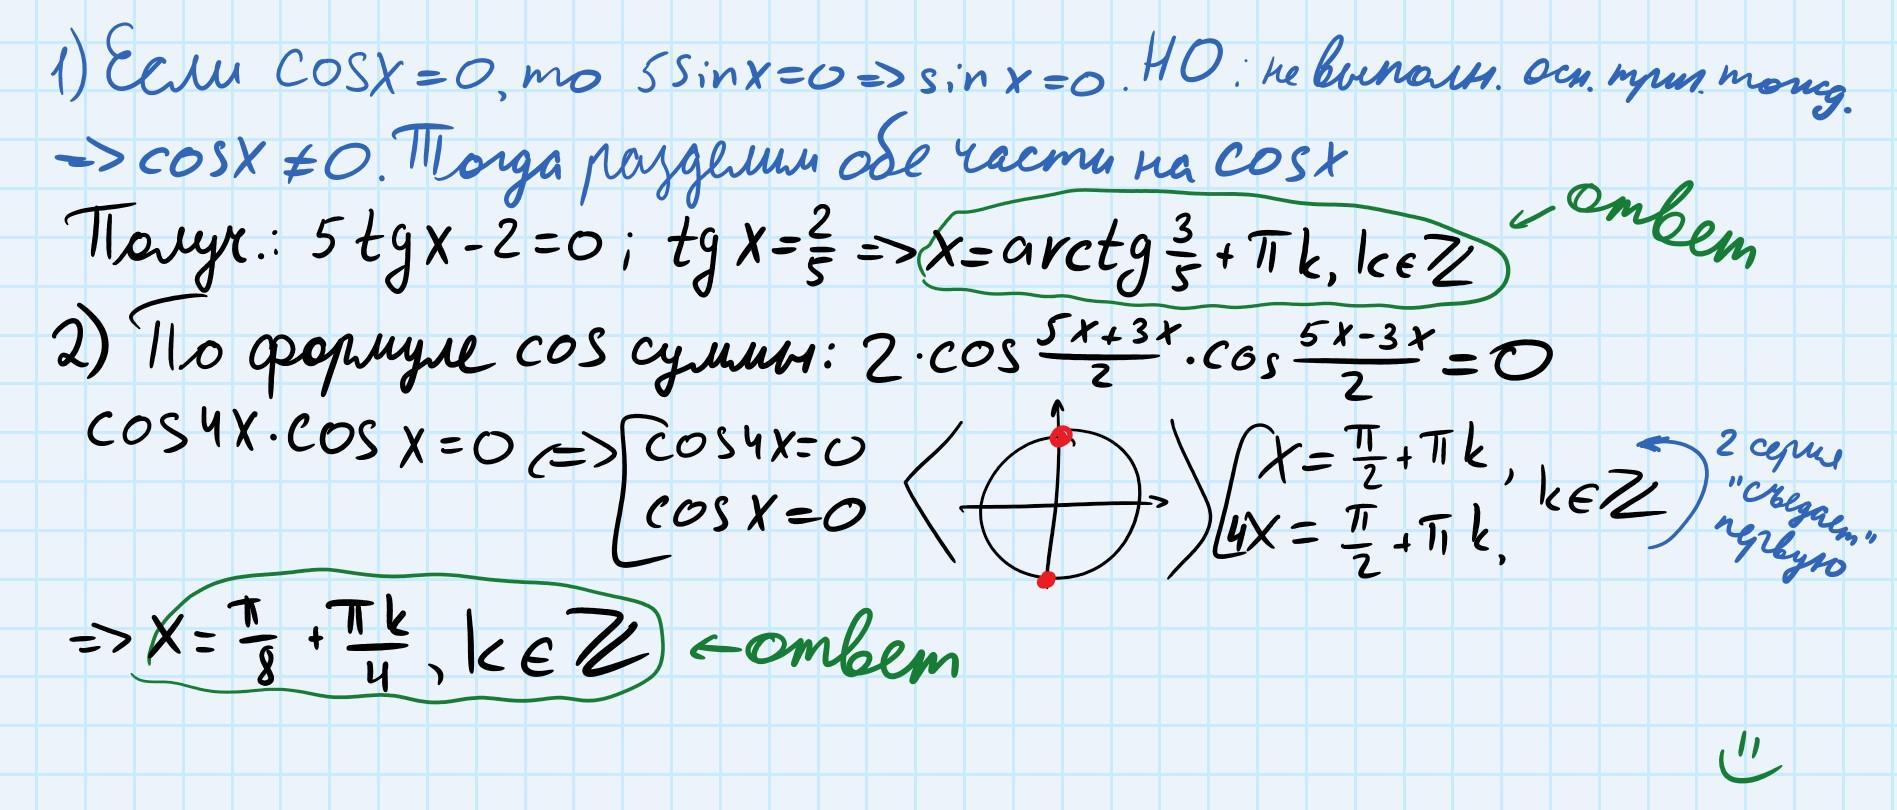 1) Если cosx=0, то 5sinx=0 => sin x=0. НО: не выполн. осн. триг. тожд.
=> cosx ≠ 0. Тогда разделим обе части на cosx
Получ.: 5tgx-2=0; tg x=2/5 => x=arctg 3/5 + πk, k∈ℤ ← ответ
2) По формуле cos суммы: 2·cos (5x+3x)/2 · cos (5x-3x)/2 = 0
cos4x·cos x=0 <=> [cos4x=0 cosx=0 < > [x= π/2 + πk, 4x= π/2 + πk, k∈ℤ
2 серия
"съедает"
первую
=> x= π/8 + πk/4, k∈ℤ ← ответ